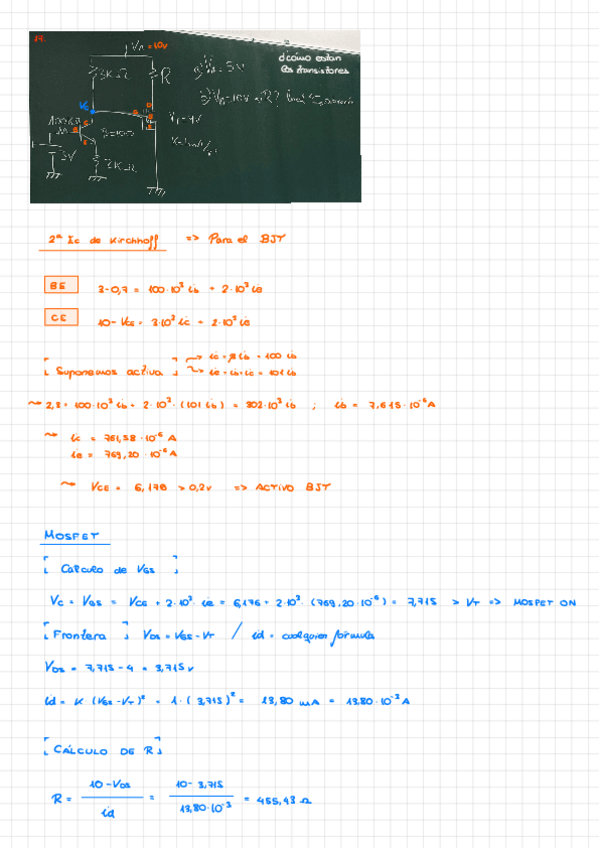 VA = 10V
¿cómo estan
los transistores
3KΩ
R
a) = 5V
VT = 4V
β=100
3V
2KΩ
2ª Lc de Kirchhoff => Para el BJT
BE 3-0,7 = 100·10³ ib + 2·10³ ie
CE 10-VCE = 3·10³ ic + 2·10³ ie
[Suponemos activa] ic = β ib = 100 ib
ie = ib+ic = 101 ib
2,3 = 100·10³ ib + 2·10³·(101 ib) = 302·10³ ib ; ib = 7,615·10⁻⁶ A
ic = 761,58·10⁻⁶ A
ie = 769,20·10⁻⁶ A
VCE = 6,176 > 0,2V => ACTIVO BJT
MOSFET
[Cálculo de VGS]
VC = VGS = VCE + 2·10³ ie = 6,176 + 2·10³·(769,20·10⁻⁶) = 7,715 > VT => MOSFET ON
[Frontera] VDS = VGS-VT / id = cualquier fórmula
VDS = 7,715-4 = 3,715 V
id = K (VGS-VT)² = 1·(3,715)² = 13,80 mA = 13,80·10⁻³ A
[CÁLCULO DE R]
R = 10-VDS / id = 10-3,715 / 13,80·10⁻³ = 455,43 Ω